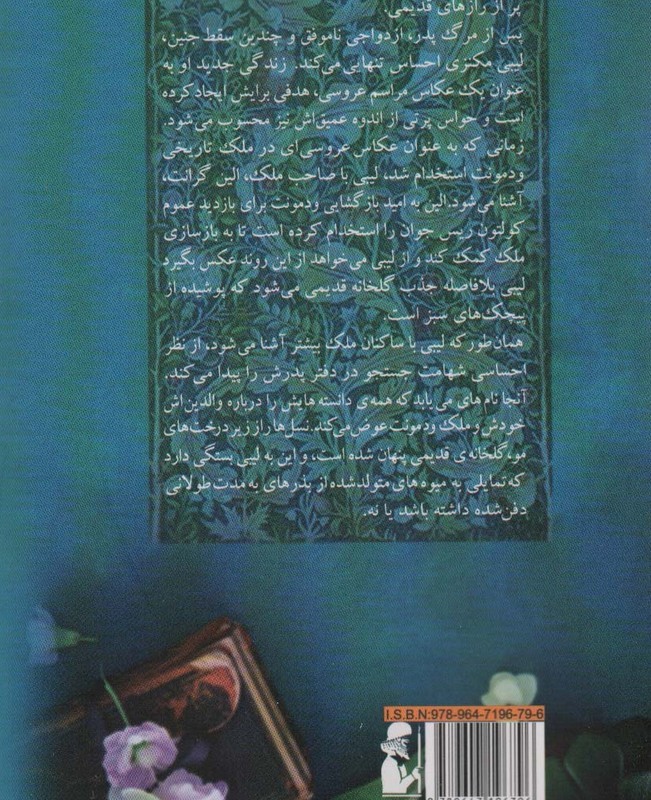 پر از رازهای قدیمی.
پس از مرگ پدر، ازدواجی ناموفق و چندین سقط جنین،
لیبی مکنزی احساس تنهایی می‌کند. زندگی جدید او به
عنوان یک عکاس مراسم عروسی، هدفی برایش ایجادکرده
است و حواس پرتی از اندوه عمیق‌اش نیز محسوب می‌شود.
زمانی که به عنوان عکاس عروسی‌ای در ملک تاریخی
ودمونت استخدام شد، لیبی با صاحب ملک، الین گرانت،
آشنا می‌شود.الین به امید بازگشایی ودمونت برای بازدید عموم
کولتون ریس جوان را استخدام کرده است تا به بازسازی
ملک کمک کند و از لیبی می‌خواهد از این روند عکس بگیرد
لیبی بلافاصله جذب گلخانه قدیمی می‌شود که پوشیده از
پیچک‌های سبز است.
همان‌طور که لیبی با ساکنان ملک بیشتر آشنا می‌شود، از نظر
احساسی شهامت جستجو در دفتر پدرش را پیدا می‌کند.
آنجا نام‌های می‌یابد که همه‌ی دانسته‌هایش را درباره والدین‌اش
خودش و ملک ودمونت عوض می‌کند.نسل‌ها را از زیر درخت‌های
مو، گلخانه‌ی قدیمی پنهان شده است، و این به لیبی بستگی دارد
که تمایلی به میوه های متولدشده از بذرهای به مدت طولانی
دفن‌شده داشته باشد یا نه.
I.S.B.N:978-964-7196-79-6